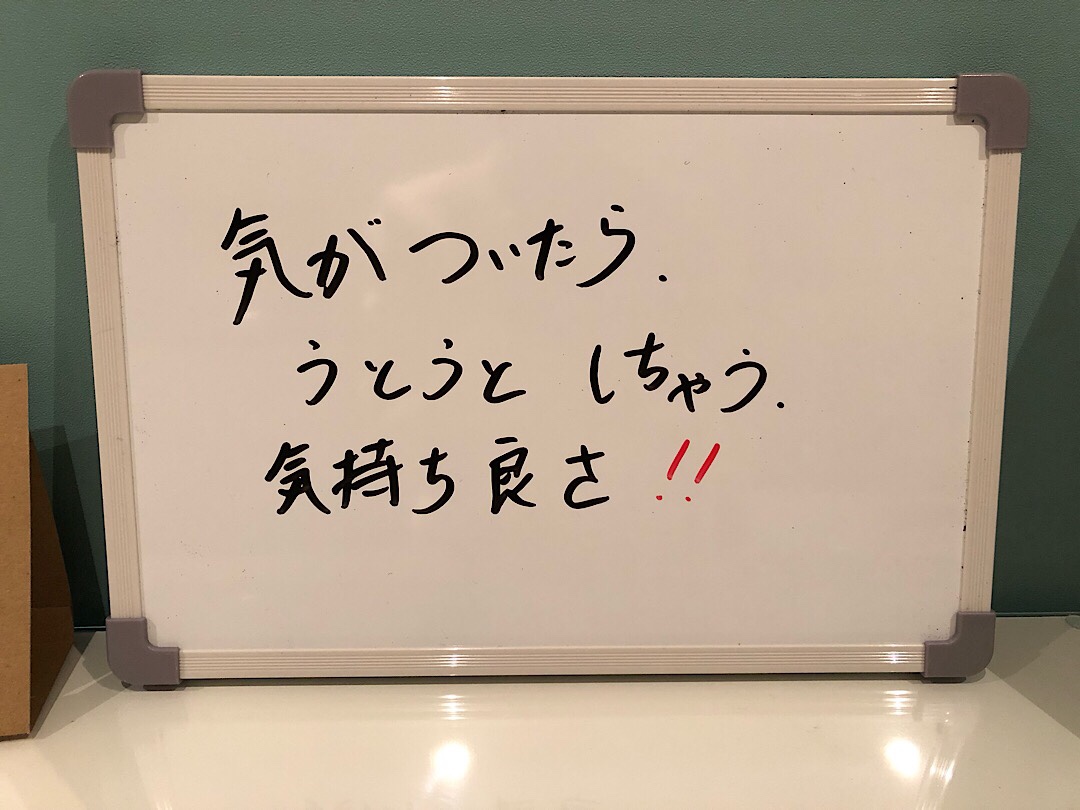 気がついたら.
うとうと しちゃう.
気持ち良さ!!